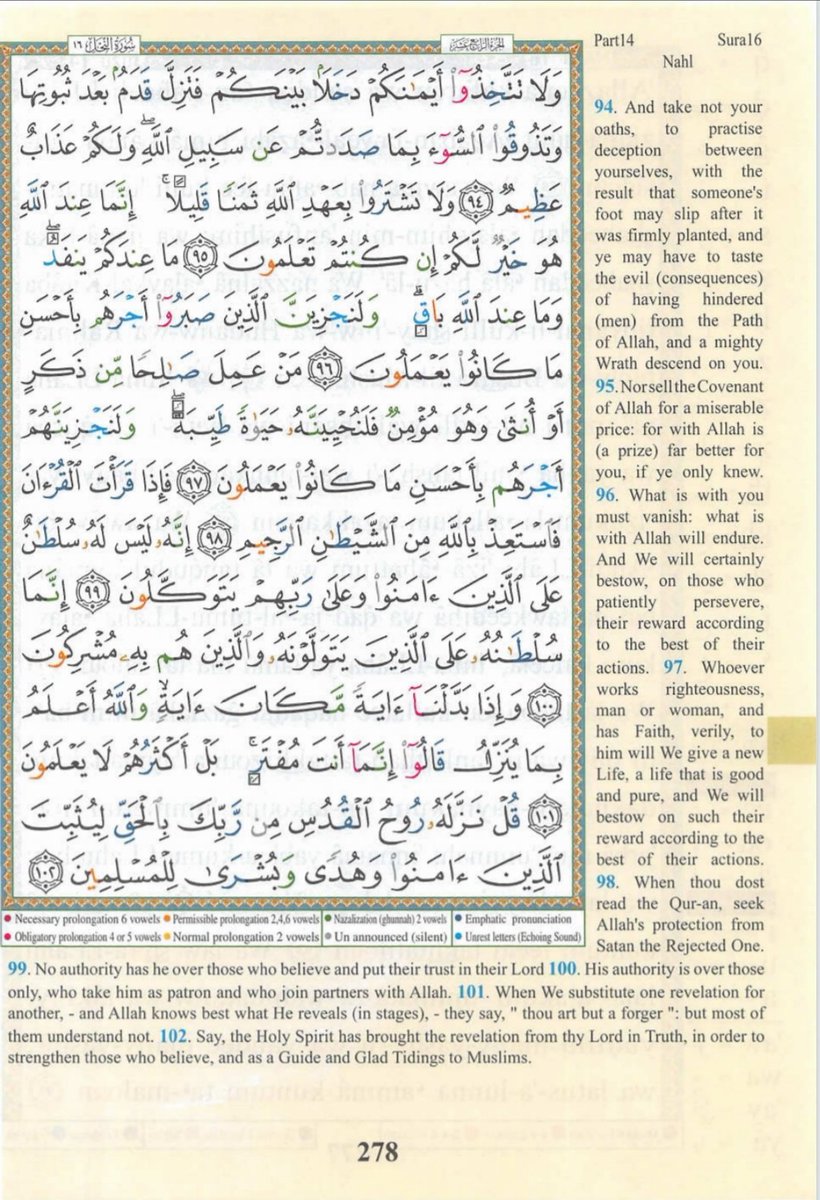 سُورَةُ النَّحْلِ ١٦
الجُزءُ الرَّابِعَ عَشَرَ
Part14 Sura16
Nahl
وَلَا تَتَّخِذُوٓا۟ أَيْمَـٰنَكُمْ دَخَلًۢا بَيْنَكُمْ فَتَزِلَّ قَدَمٌۢ بَعْدَ ثُبُوتِهَا
وَتَذُوقُوا۟ ٱلسُّوٓءَ بِمَا صَدَدتُّمْ عَن سَبِيلِ ٱللَّهِ ۖ وَلَكُمْ عَذَابٌ
عَظِيمٌ ٩٤ وَلَا تَشْتَرُوا۟ بِعَهْدِ ٱللَّهِ ثَمَنًا قَلِيلًا ۚ إِنَّمَا عِندَ ٱللَّهِ
هُوَ خَيْرٌ لَّكُمْ إِن كُنتُمْ تَعْلَمُونَ ٩٥ مَا عِندَكُمْ يَنفَدُ ۖ
وَمَا عِندَ ٱللَّهِ بَاقٍ ۗ وَلَنَجْزِيَنَّ ٱلَّذِينَ صَبَرُوٓا۟ أَجْرَهُم بِأَحْسَنِ
مَا كَانُوا۟ يَعْمَلُونَ ٩٦ مَنْ عَمِلَ صَـٰلِحًا مِّن ذَكَرٍ
أَوْ أُنثَىٰ وَهُوَ مُؤْمِنٌ فَلَنُحْيِيَنَّهُۥ حَيَوٰةً طَيِّبَةً ۖ وَلَنَجْزِيَنَّهُمْ
أَجْرَهُم بِأَحْسَنِ مَا كَانُوا۟ يَعْمَلُونَ ٩٧ فَإِذَا قَرَأْتَ ٱلْقُرْءَانَ
فَٱسْتَعِذْ بِٱللَّهِ مِنَ ٱلشَّيْطَـٰنِ ٱلرَّجِيمِ ٩٨ إِنَّهُۥ لَيْسَ لَهُۥ سُلْطَـٰنٌ
عَلَى ٱلَّذِينَ ءَامَنُوا۟ وَعَلَىٰ رَبِّهِمْ يَتَوَكَّلُونَ ٩٩ إِنَّمَا
سُلْطَـٰنُهُۥ عَلَى ٱلَّذِينَ يَتَوَلَّوْنَهُۥ وَٱلَّذِينَ هُم بِهِۦ مُشْرِكُونَ
١٠٠ وَإِذَا بَدَّلْنَآ ءَايَةً مَّكَانَ ءَايَةٍ ۙ وَٱللَّهُ أَعْلَمُ
بِمَا يُنَزِّلُ قَالُوٓا۟ إِنَّمَآ أَنتَ مُفْتَرٍۭ ۚ بَلْ أَكْثَرُهُمْ لَا يَعْلَمُونَ
١٠١ قُلْ نَزَّلَهُۥ رُوحُ ٱلْقُدُسِ مِن رَّبِّكَ بِٱلْحَقِّ لِيُثَبِّتَ
ٱلَّذِينَ ءَامَنُوا۟ وَهُدًى وَبُشْرَىٰ لِلْمُسْلِمِينَ ١٠٢
94. And take not your
oaths, to practise
deception between
yourselves, with the
result that someone's
foot may slip after it
was firmly planted, and
ye may have to taste
the evil (consequences)
of having hindered
(men) from the Path
of Allah, and a mighty
Wrath descend on you.
95. Nor sell the Covenant
of Allah for a miserable
price: for with Allah is
(a prize) far better for
you, if ye only knew.
96. What is with you
must vanish: what is
with Allah will endure.
And We will certainly
bestow, on those who
patiently persevere,
their reward according
to the best of their
actions. 97. Whoever
works righteousness,
man or woman, and
has Faith, verily, to
him will We give a new
Life, a life that is good
and pure, and We will
bestow on such their
reward according to the
best of their actions.
98. When thou dost
read the Qur-an, seek
Allah's protection from
Satan the Rejected One.
Necessary prolongation 6 vowels Permissible prolongation 2,4,6 vowels Nazalization (ghunnah) 2 vowels Emphatic pronunciation
Obligatory prolongation 4 or 5 vowels Normal prolongation 2 vowels Un announced (silent) Unrest letters (Echoing Sound)
99. No authority has he over those who believe and put their trust in their Lord 100. His authority is over those
only, who take him as patron and who join partners with Allah. 101. When We substitute one revelation for
another, - and Allah knows best what He reveals (in stages), - they say, " thou art but a forger ": but most of
them understand not. 102. Say, the Holy Spirit has brought the revelation from thy Lord in Truth, in order to
strengthen those who believe, and as a Guide and Glad Tidings to Muslims.
278